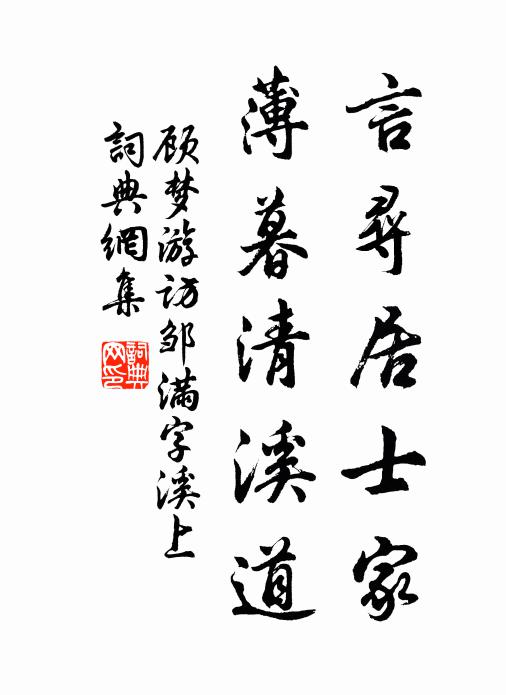 言尋居士家
薄暮清溪道
顾梦游访邹满字溪上
詞典網集
詞典网印